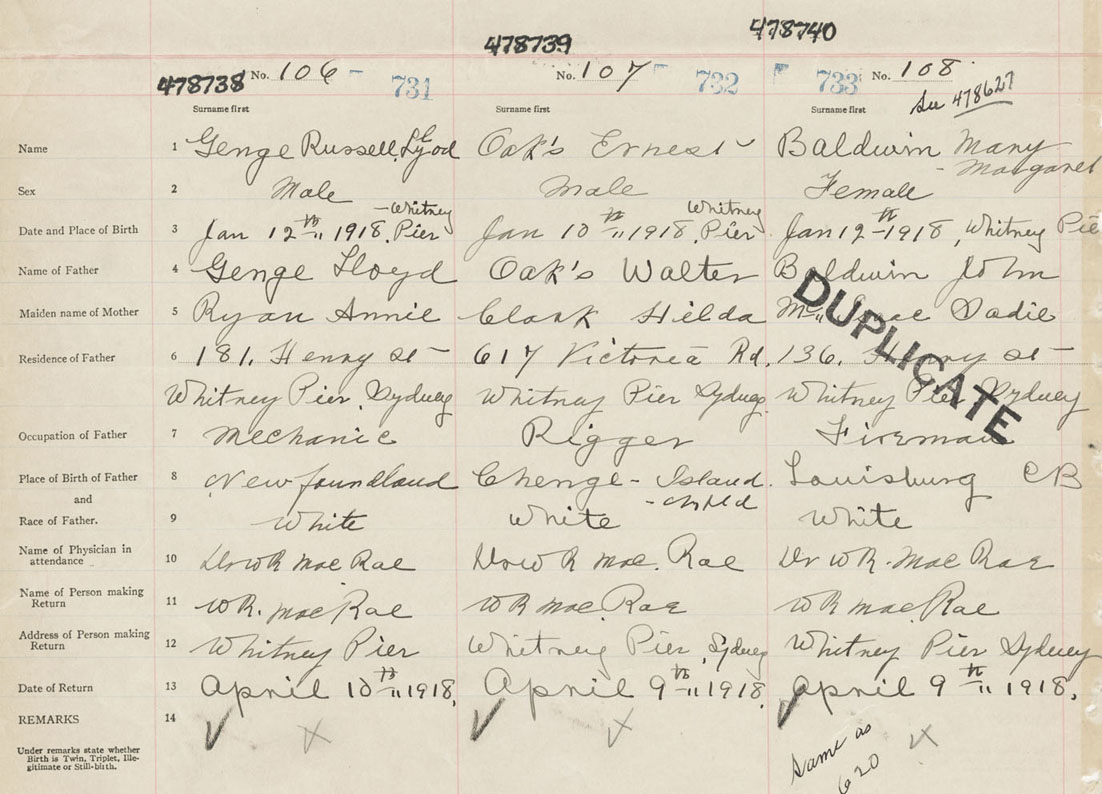 478739
478740
478738 No. 106 731 No. 107 732 733 No. 108
Surname first Surname first Surname first See 478627
Name 1 Genge Russell Lloyd Oak's Ernest Baldwin Mary
Margaret
Sex 2 Male Male Female
Whitney Whitney
Date and Place of Birth 3 Jan 12th 1918, Pier Jan 10th 1918, Pier Jan 12th 1918, Whitney Pie
Name of Father 4 Genge Lloyd Oak's Walter Baldwin John
Maiden name of Mother 5 Ryan Annie Clark Hilda Sadie
Residence of Father 6 181, Henry St 617 Victoria Rd, 136, Henry St
Whitney Pier, Sydney Whitney Pier Sydney Whitney Pier Sydney
DUPLICATE
Occupation of Father 7 Mechanic Rigger Fireman
Place of Birth of Father 8 Newfoundland Chenge - Island Louisburg CB
and - Nfld
Race of Father. 9 White White White
Name of Physician in
attendance 10 Dr W R MacRae Dr W R Mac Rae Dr W R. Mac Rae
Name of Person making
Return 11 W R. MacRae W R Mac Rae W R MacRae
Address of Person making
Return 12 Whitney Pier Whitney Pier, Sydney Whitney Pier Sydney
Date of Return 13 April 10th 1918, April 9th 1918, April 9th 1918,
REMARKS 14
Under remarks state whether
Birth is Twin, Triplet, Ille-
gitimate or Still-birth.
Same as
620